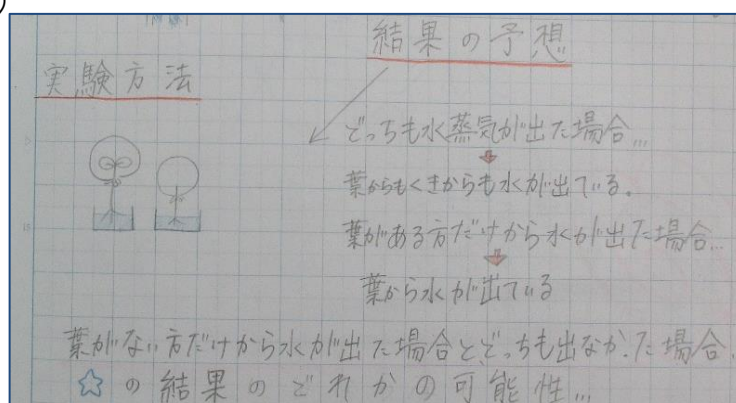 実験方法
結果の予想
どっちも水蒸気が出た場合…
葉からもくきからも水が出ている。
葉がある方だけから水が出た場合…
葉から水が出ている
葉がない方だけから水が出た場合とどっちも出なかった場合。
☆の結果のどれかの可能性…